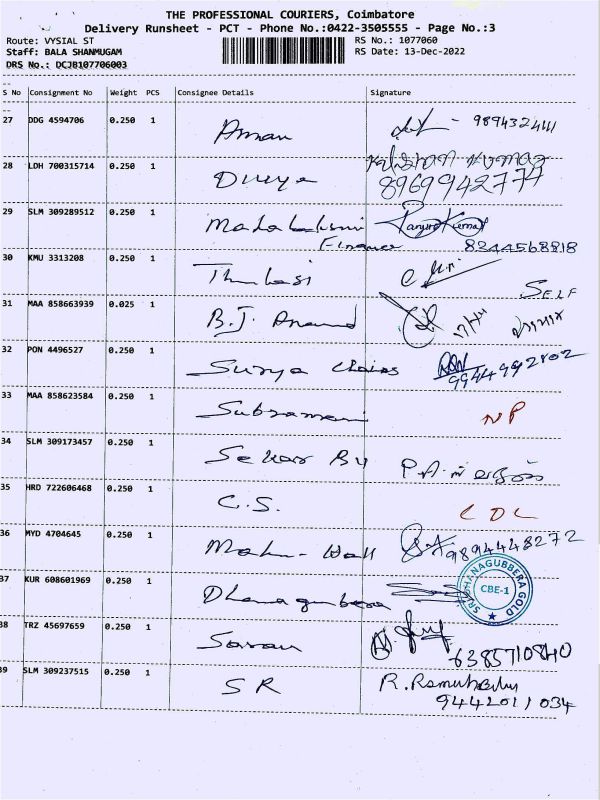 THE PROFESSIONAL COURIERS, Coimbatore
Delivery Runsheet - PCT - Phone No.:0422-3505555 - Page No.:3
Route: VYSIAL ST RS No.: 1077060
Staff: BALA SHANMUGAM RS Date: 13-Dec-2022
DRS No.: DCJB107706003
S No Consignment No Weight PCS Consignee Details Signature
27 DDG 4594706 0.250 1 Aman - 9894324111
28 LDH 700315714 0.250 1 Divya Krishan Kumar
8969942777
29 SLM 309289512 0.250 1 Mahalakshmi Ranjith Kumar
Finance 8244568818
30 KMU 3313208 0.250 1 Thulasi
SELF
31 MAA 858663939 0.025 1 B.J. Anand
32 PON 4496527 0.250 1 Surya Chairs
9944992802
33 MAA 858623584 0.250 1 Subramani NP
34 SLM 309173457 0.250 1 Sekar By P.A.
35 HRD 722606468 0.250 1 C.S. CDC
36 MYD 4704645 0.250 1 Mahu-Wall 9894448272
37 KUR 608601969 0.250 1 Dhanagubera
SRI DHANAGUBBERA GOLD
CBE-1
38 TRZ 45697659 0.250 1 Saravan
6385710840
39 SLM 309237515 0.250 1 S R R. Ramubabu
9442011034